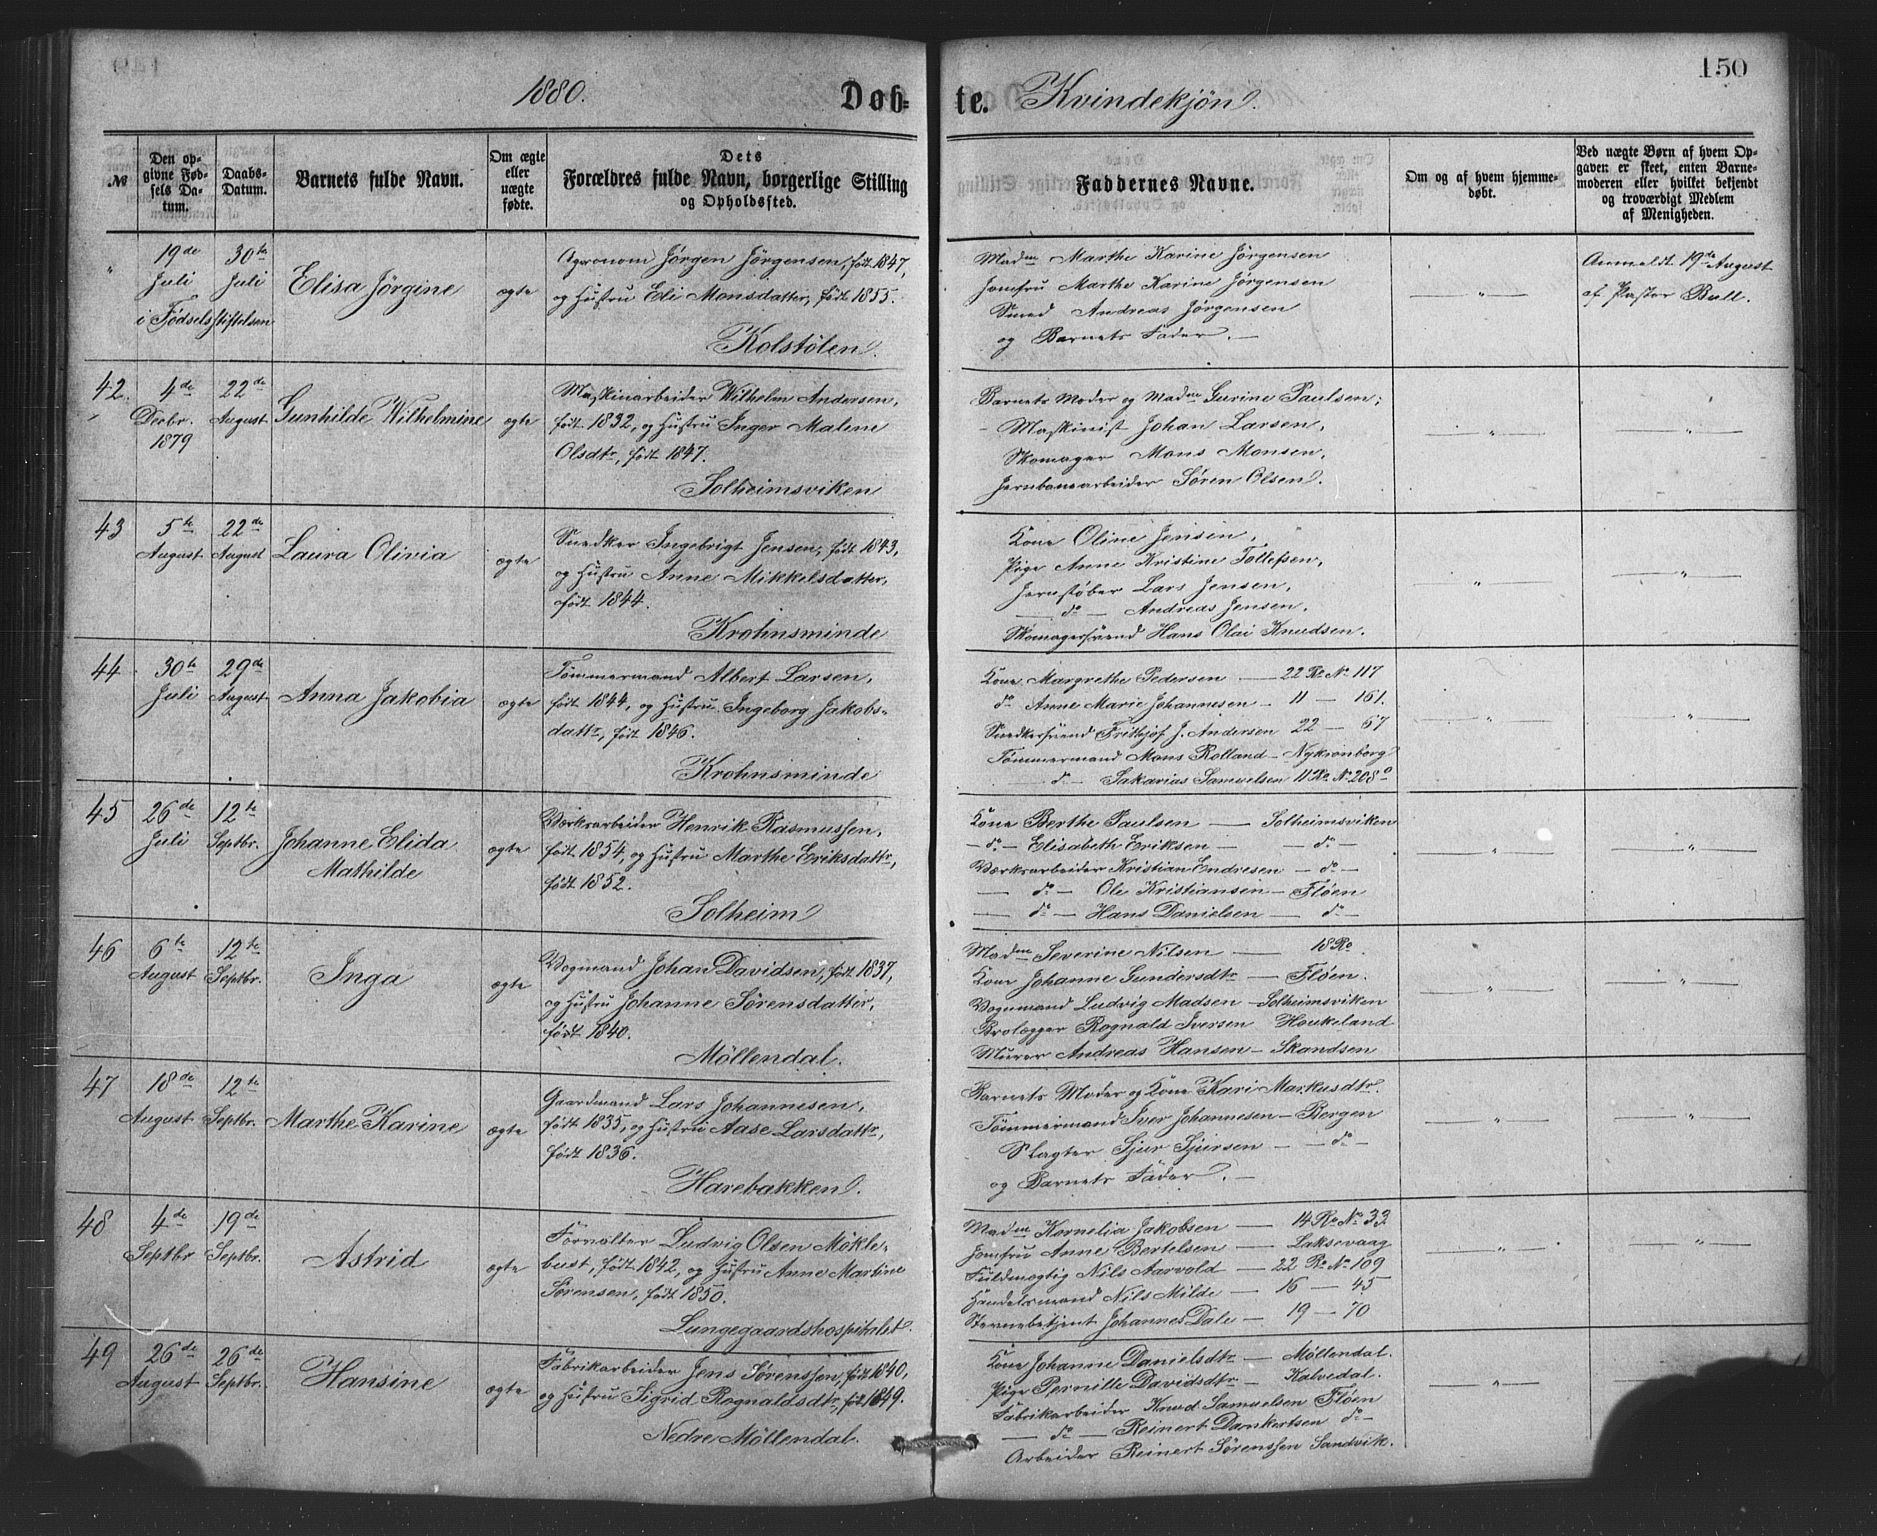 150
1880. Døb= te. Kvindekjön.
№
Den op-
givne Fød-
sels Da-
tum.
Daabs-
Datum.
Barnets fulde Navn.
Om ægte
eller
uægte
fødte.
Dets
Forældres fulde Navn, borgerlige Stilling
og Opholdssted.
Faddernes Navne.
Om og af hvem hjemme-
døbt.
Ved uægte Børn af hvem Op-
gaven er skeet, enten Barne-
moderen eller hvilket bekjendt
og troværdigt Medlem
af Menigheden.
"
19de
Juli
30te
Juli
i Fødselsstiftelsen
Elisa Jörgine
ægte
Agronom Jörgen Jörgensen, født 1847,
og Hustru Eli Monsdatter, født 1855.
Kolstölen.
Madm Marthe Karine Jörgensen
Jomfru Marthe Karine Jörgensen
Smed Andreas Jörgensen
og Barnets Fader. —
— " —
Anmeldt 19de August
af Pastor Bull.
42.
4de
Decbr.
1879
22de
August
Gunhilde Wilhelmine
ægte
Maskinarbeider Wilhelm Andersen,
født 1832, og Hustru Inger Malene
Olsdtr, født 1847.
Solheimsviken
Barnets Moder og Madme Gurine Paulsen;
Maskinist Johan Larsen,
Skomager Mons Monsen,
Jernbanearbeider Sören Olsen.
— " —
— " —
43
5te
August
22de
August
Laura Olivia
ægte
Snedker Ingebrigt Jensen, født 1843,
og Hustru Anne Mikkelsdatter,
født 1844.
Krohnsminde
Kone Oline Jensen,
Pige Anne Kristine Tollefsen,
Jernstøber Lars Jensen,
— do — Andreas Jensen,
Skomagersvend Hans Olai Knudsen.
— " —
— " —
44
30te
Juli
29de
August
Anna Jakobia
ægte
Tömmermand Albert Larsen,
født 1844, og Hustru Ingeborg Jakobs-
dattr, født 1846.
Krohnsminde
Kone Margrethe Pedersen — 22 Ro No 117
do Anne Marie Johannesen — 11 — 161.
Snedkersvend Frithjof J. Andersen 22 — 67
Tömmermand Mons Rolland — Nykronborg
— do — Sakarias Samuelsen 11 Ro No 208
— " —
— " —
45
26de
Juli
12te
Septbr.
Johanne Elida
Mathilde
ægte
Værksarbeider Henrik Rasmussen,
født 1854, og Hustru Marthe Eriksdattr,
født 1852.
Solheim
Kone Berthe Paulsen — Solheimsviken
— do — Elisabeth Eriksen — do —
Værksarbeider Kristian Endresen — do —
— do — Ole Kristiansen — Flöen
— do — Hans Danielsen — do —
— " —
— " —
46
6te
August
12te
Septbr.
Inga
ægte
Vognmand Johan Davidsen, født 1837,
og Hustru Johanne Sörensdatter,
født 1840.
Möllendal.
Madme Severine Nilsen — 18 Ro
Kone Johanne Gundersdtr — Flöen.
Vognmand Ludvig Madsen — Solheimsviken
Brolægger Rognald Iversen Houkeland
Murer Andreas Hansen — Skandsen
— " —
— " —
47
18de
August
12te
Septbr.
Marthe Karine
ægte
Gaardmand Lars Johannesen,
født 1835, og Hustru Aase Larsdattr,
født 1836.
Harebakken.
Barnets Moder og Kone Kari Markusdtr.
Tömmermand Iver Johannesen — Bergen
Slagter Sjur Sjursen — do —
og Barnets Fader. —
— " —
— " —
48
4de
Septbr
19de
Septbr.
Astrid
ægte
Forvalter Ludvig Olsen Mökle-
bust, født 1842, og Hustru Anne Martine
Sörensen, født 1850.
Lungegaardshospitalet.
Madme Kornelia Jakobsen — 14 Ro No 33
Jomfru Anne Bertelsen — Laksevaag
Fuldmægtig Nils Aarvold — 22 Ro No 109
Handelsmand Nils Milde — 16 — 45
Johannes Dale — 19 — 70
— " —
— " —
49
26de
August
26de
Septbr.
Hansine
ægte
Fabrikarbeider Jens Sörenssen, født 1840,
og Hustru Sigrid Rognaldsdtr, født 1849.
Nedre Möllendal.
Kone Johanne Danielsdtr — Möllendal.
Pige Pernille Davidsdtr — Kalvedal.
Fabrikarbeider Knud Samuelsen Flöen
— do — Reinert Dankertsen do —
Arbeider Reinert Sörenssen Sandvik.
— " —
"